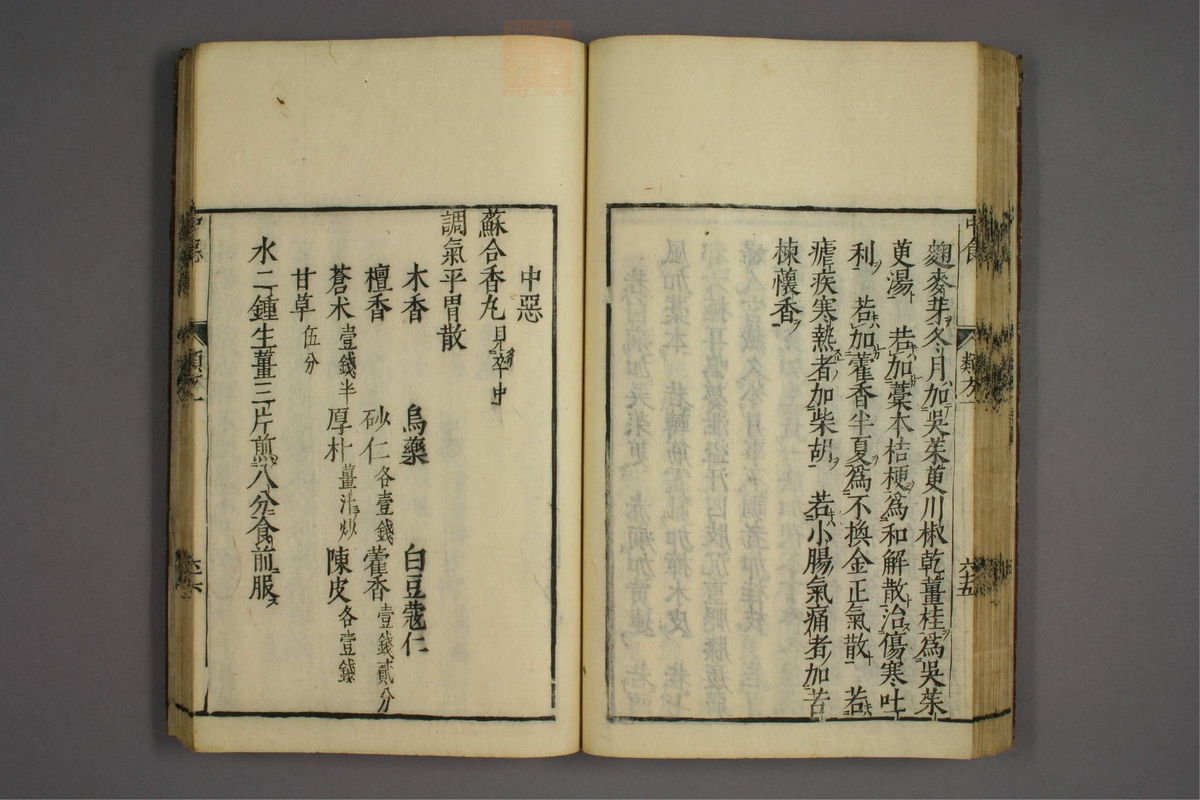 麹麥芽冬月加吳茱萸川椒乾薑桂爲吳茱
萸湯 若加藁本桔梗爲和解散治傷寒吐
利 若加藿香半夏爲不換金正氣散 若
瘧疾寒熱者加柴胡 若小腸氣痛者加苦
楝蘹香
中惡
蘇合香丸見卒中
調氣平胃散
木香 烏藥 白豆蔻仁
檀香 砂仁各壹錢 藿香壹錢貳分
蒼朮壹錢半 厚朴薑汁炒 陳皮各壹錢
甘草伍分
水二鍾生薑三片煎八分食前服